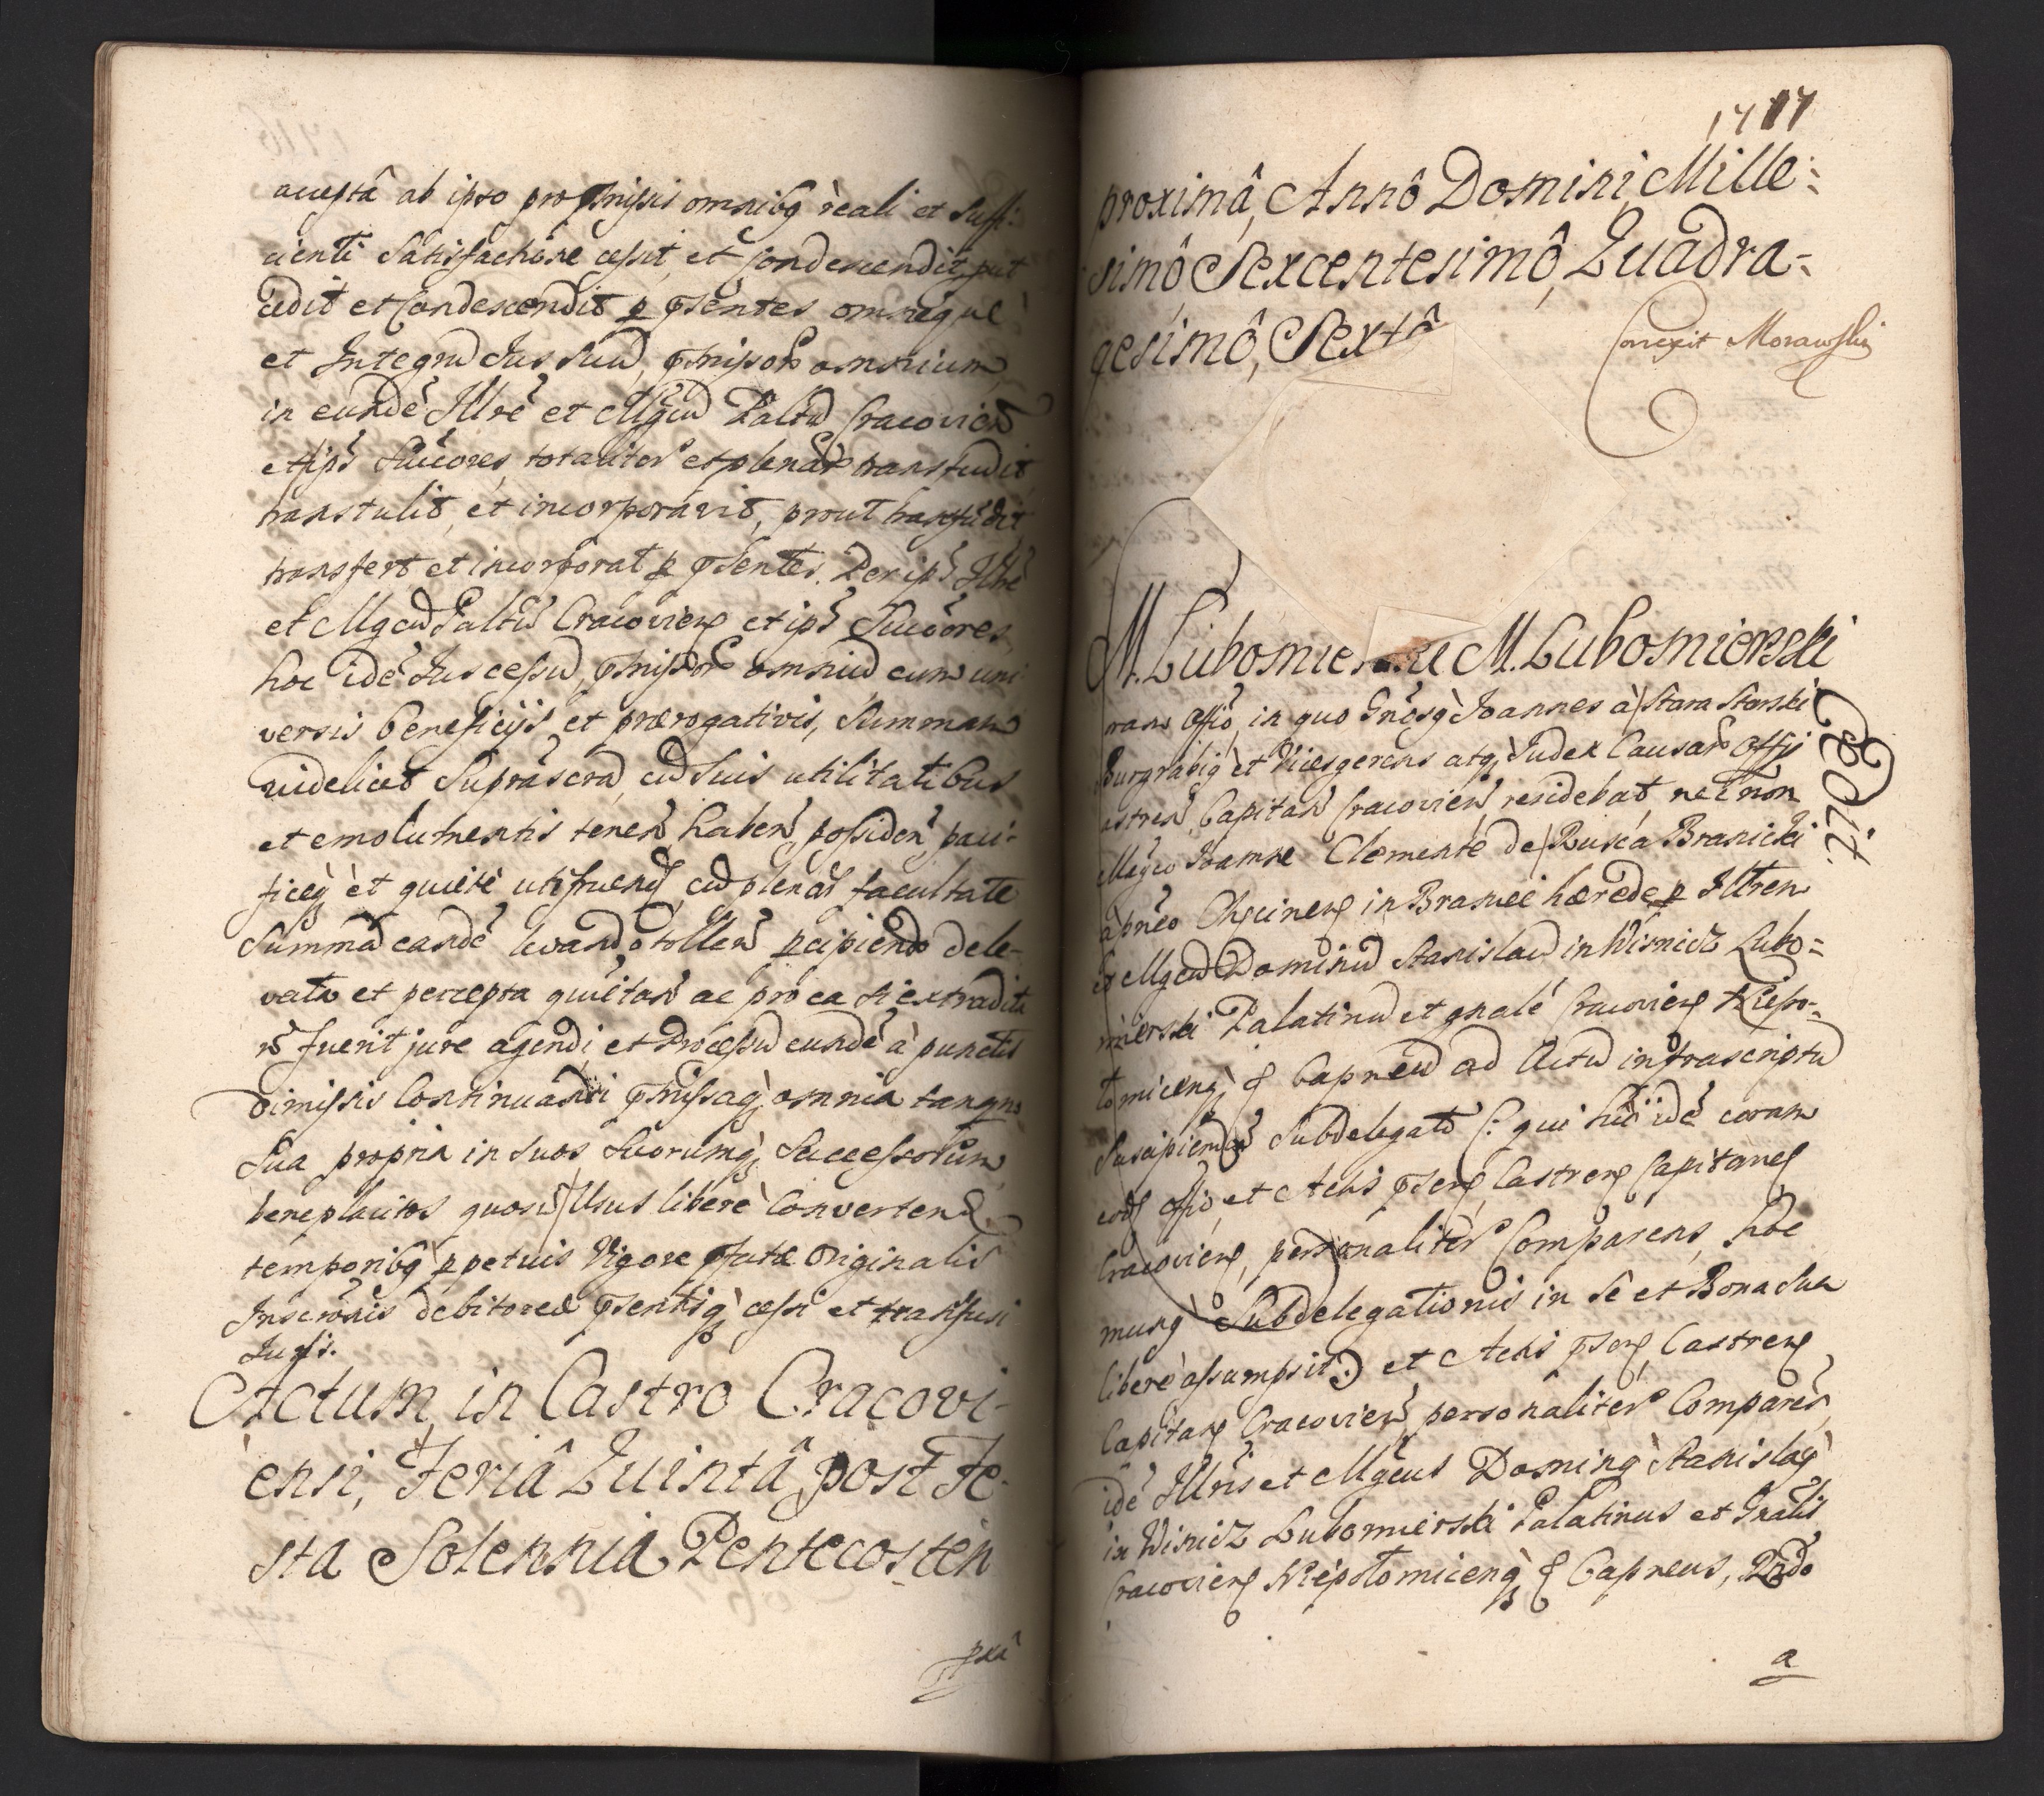 acceptâ ab ipso pro pmissis omnibq reali et suffi:
cienti Satisfactione cessit, et Condescendit, put
cedit et Condescendit p psentes omneque
et Integrũ Jus suũ, pmissoR omnium,
in eundē Illrē et Mgcũ Paltũ Cracovieñ
et ips Succores totaliter et plenariè transfudit
transtulit, et incorporavit, prout transfudit
transfert et incorporat p psentes. Per ips Illrē
et Mgcũ Paltũ Cracovieñ et ips Succores
hoc idē Jus cessũ, pmissoR omniũ cum uni
versis beneficijs et prærogativis, Summam
videlicet Suprascrã, cũ suis utilitatibus
et emolumentis teneñ habeñ possideñ paci-
ficeq et quietè utifrueñ, cũ plenâ facultate
Summã eandē levando tolleñ pcipiendo dele-
vata et percepta quietañ ac pro ea si extradita
ñ fuerit jure agendi, et Processũ eundē à punctis
dimissis Continuandi pmissaq, omnia tanqm
Sua propria in suos Suorumq, Successorum
beneplacitos quosvis Usus liberè Converteñ
temporibq ppetuis Vigore pfatæ Originalis
Inscrōnis debitoreæ psentisq, cessi et transfusi
Juris.
Actum in Castro Cracovi-
ensi, Feriâ Quintâ post Fe-
sta Solennia Pentecosten
pxâ
1717
proximâ, Annô Domini Mille-
simô Sexcentesimô, Quadra-
gesimô, Sextô
Correxit Morawski
M. Lubomierski M. Lubomierski
Cedit.
ram Offiō, in quo Gnōsq Joannes à Stara Starski
Burgrabiq et Vicesgerens atq, Judex CausaR Offij
astreñ, Capitañ Cracovieñ residebat nec non
Mgco Joanne Clemente de Rusca Branicki
apneo Chęcineñ in Branice hærede p Illrem
et Mgcũ Dominũ Stanislaũ in Wisnicz Lubo-
mierski Palatinũ et gnalē Cracovieñ Niepo-
tomiceñq, & Capneũ ad Actũ infrascriptũ
Suscipiendũ Subdelegato (: qui hic idē coram
eod Offiō, et Actis pseñ Castreñ Capitaneñ
Cracovieñ, personaliter Comparens, hoc
munq Subdelegationis in se et Bona Sua
liberè assumpsit :) et Actis pseñ Castreñ
Capitañ Cracovieñ personaliter Comparēs,
idē Illris et Mgcus Dominq Stanislaq
in Wisnicz Lubomierski Palatinus et Gnalis
Cracovieñ Niepotomiceñq, & Capneus,
a